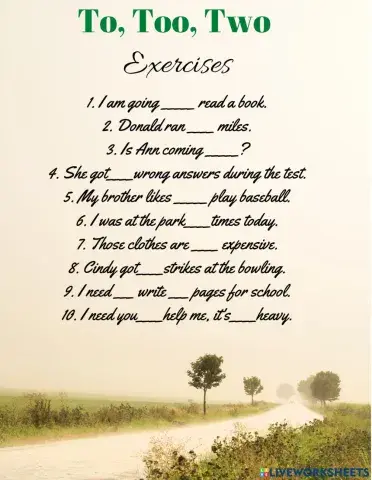 To, Too, Two
Exercises
1. I am going ____ read a book.
2. Donald ran ___ miles.
3. Is Ann coming ____?
4. She got___wrong answers during the test.
5. My brother likes ____ play baseball.
6. I was at the park___times today.
7. Those clothes are ___ expensive.
8. Cindy got___strikes at the bowling.
9. I need __ write __ pages for school.
10. I need you___help me, it's___heavy.
LIVEWORKSHEETS